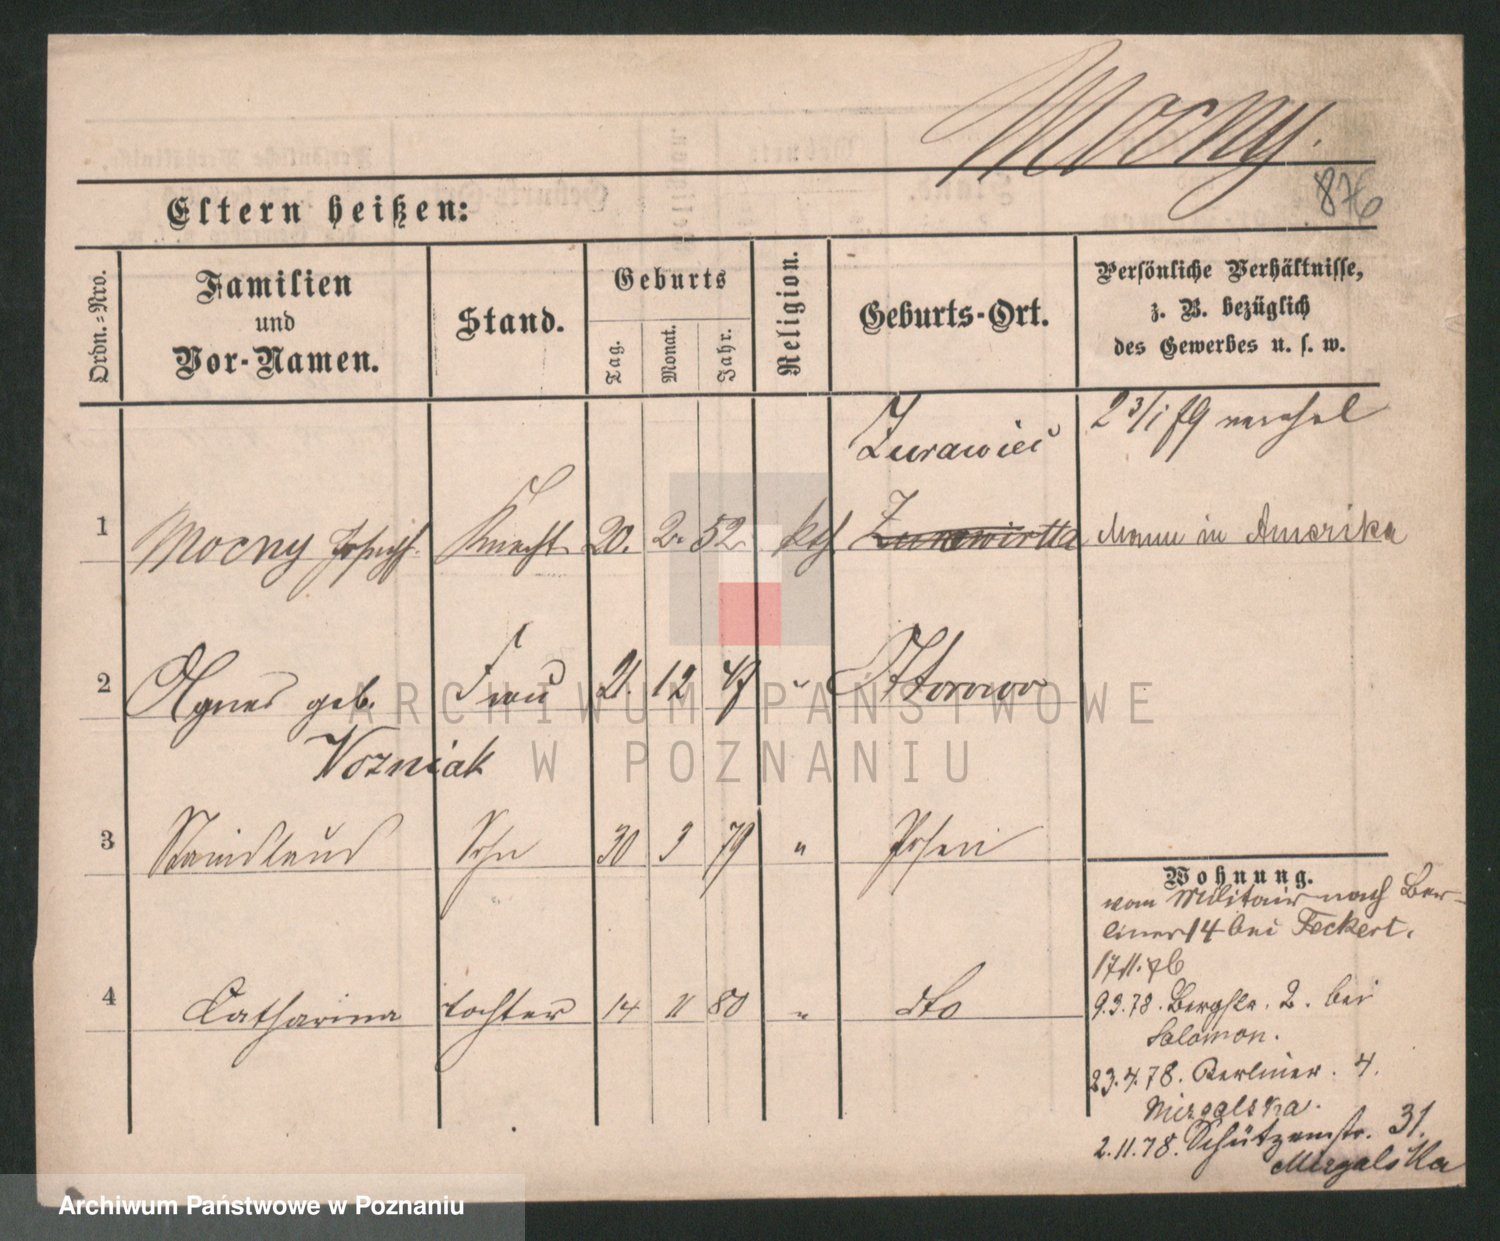 Mocny.
876
Eltern heißen:
Ordn.-Nro.
Familien
und
Vor-Namen.
Stand.
Geburts
Tag.
Monat.
Jahr.
Religion.
Geburts-Ort.
Persönliche Verhältnisse,
z. B. bezüglich
des Gewerbes u. s. w.
Zurawiec
1 Mocny Joseph Knecht 20. 2. 52 kth Mann in Amerika
2 Agnes geb. Frau 21. 12 47 " Otorowo
Wozniak
3 Stanislaus Sohn 30 3 79 " Posen
4 Catharina tochter 14 11 80 " dto
Wohnung.
vom Militair nach Ber-
liner 14 bei Feckert.
17.11.76
9.3.78. Bergstr. 2. bei
Salomon.
23.4.78. Berliner. 4.
Mizgalska.
2.11.78. Schützenstr. 31.
Mizgalska
ARCHIWUM PAŃSTWOWE
W POZNANIU
Archiwum Państwowe w Poznaniu